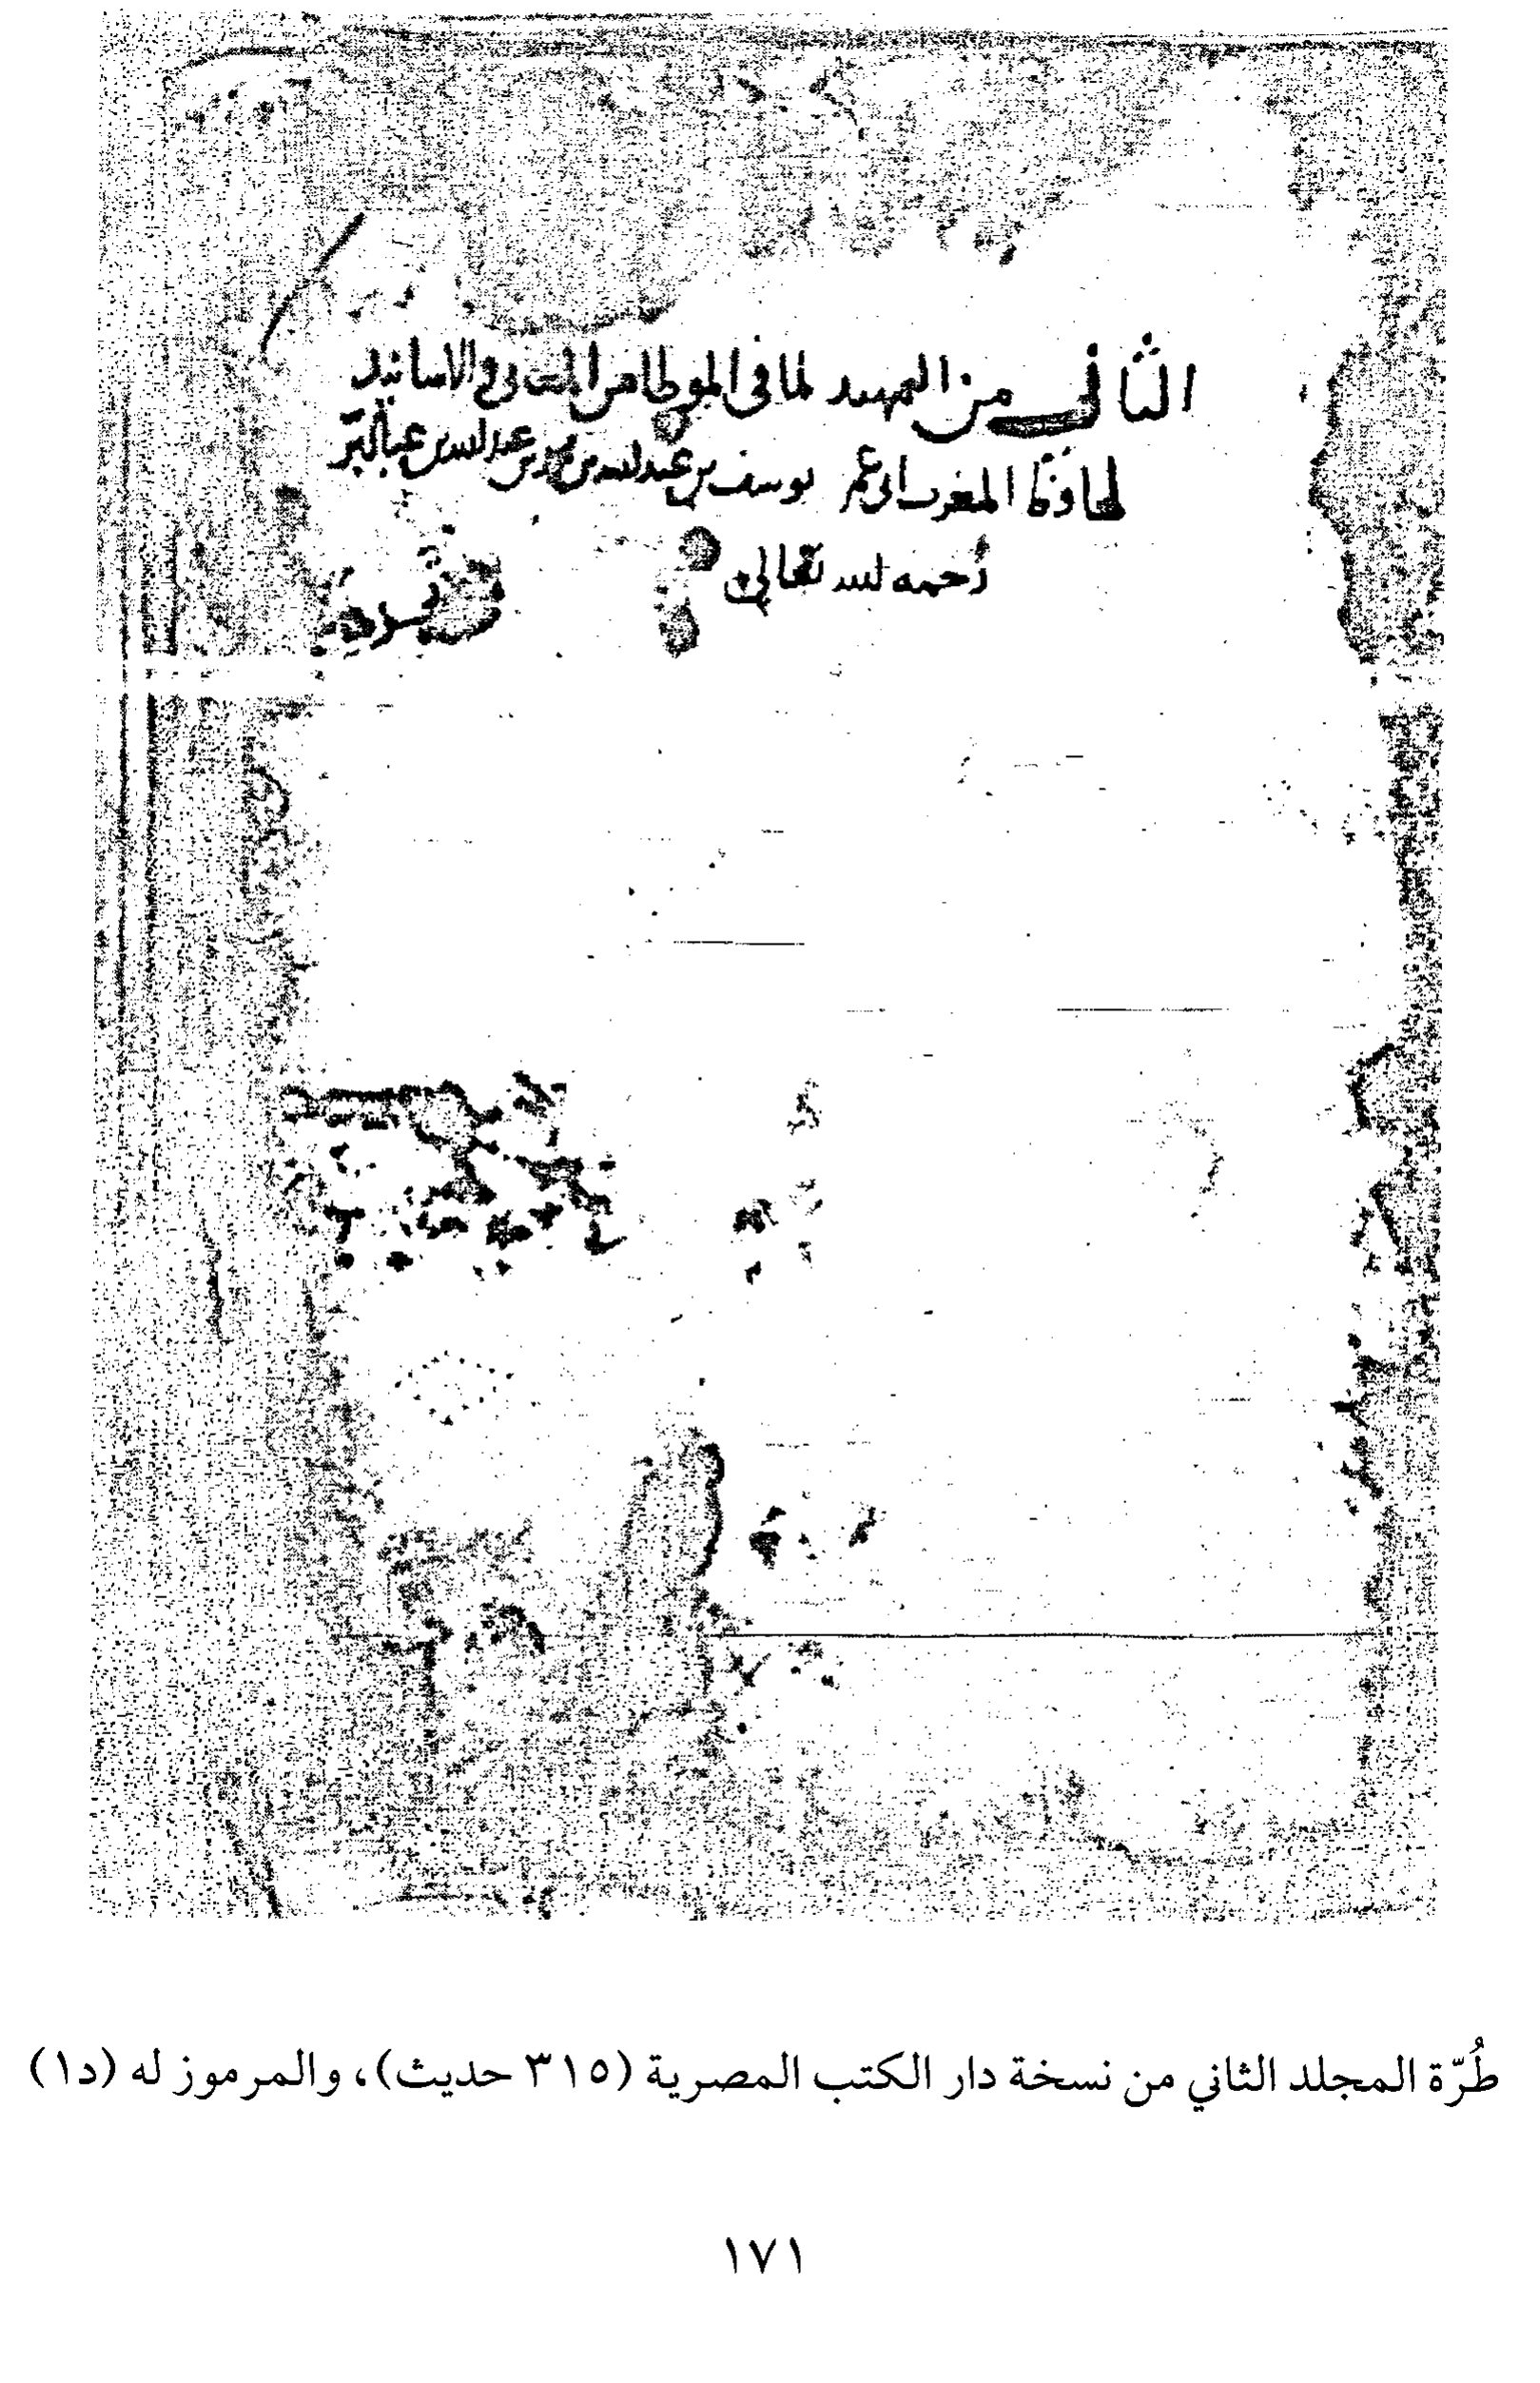 الثاني من التمهيد لما في الموطا من المتون والاسانيد
لحافظ المغرب ابي عمر يوسف بن عبد الله بن محمد بن عبد الله بن عبد البر
رحمه الله تعالى
طُرّة المجلد الثاني من نسخة دار الكتب المصرية (٣١٥ حديث)، والمرموز له (د١)
١٧١